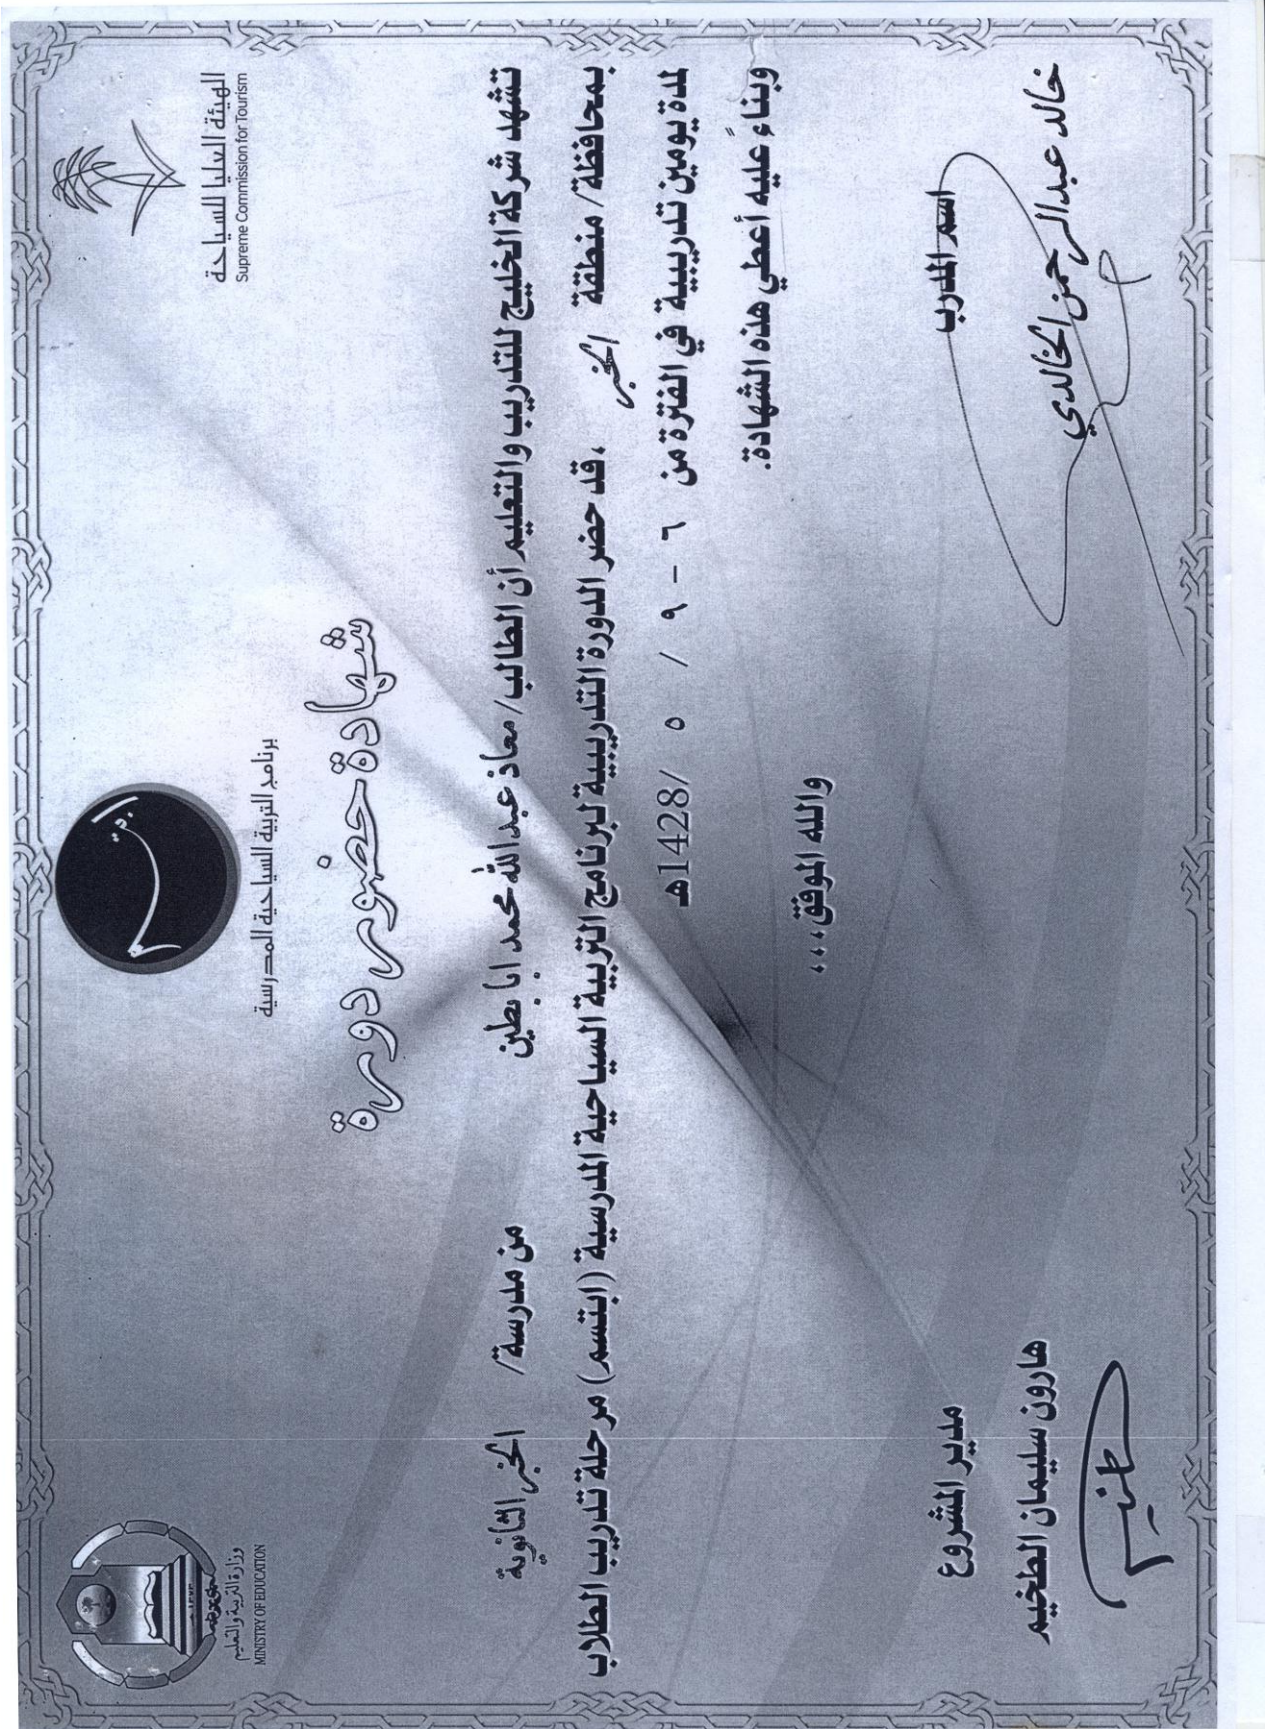 الهيئة العليا للسياحة
Supreme Commission for Tourism
برنامج التربية السياحية المدرسية
وزارة التربية والتعليم
MINISTRY OF EDUCATION
شهادة حضور دورة
تشهد شركة الخليج للتدريب والتعليم أن الطالب/ معاذ عبدالله محمد ابا بطين من مدرسة/ الخبر الثانوية
بمحافظة/ منطقة الخبر ، قد حضر الدورة التدريبية لبرنامج التربية السياحية المدرسية (ابتسم) مرحلة تدريب الطلاب
لمدة يومين تدريبية في الفترة من ٦ - ٩ / ٥ /1428هـ
وبناءً عليه أعطي هذه الشهادة.
والله الموفق،،،
اسم المدرب
خالد عبدالرحمن الخالدي
مدير المشروع
هارون سليمان الطخيم